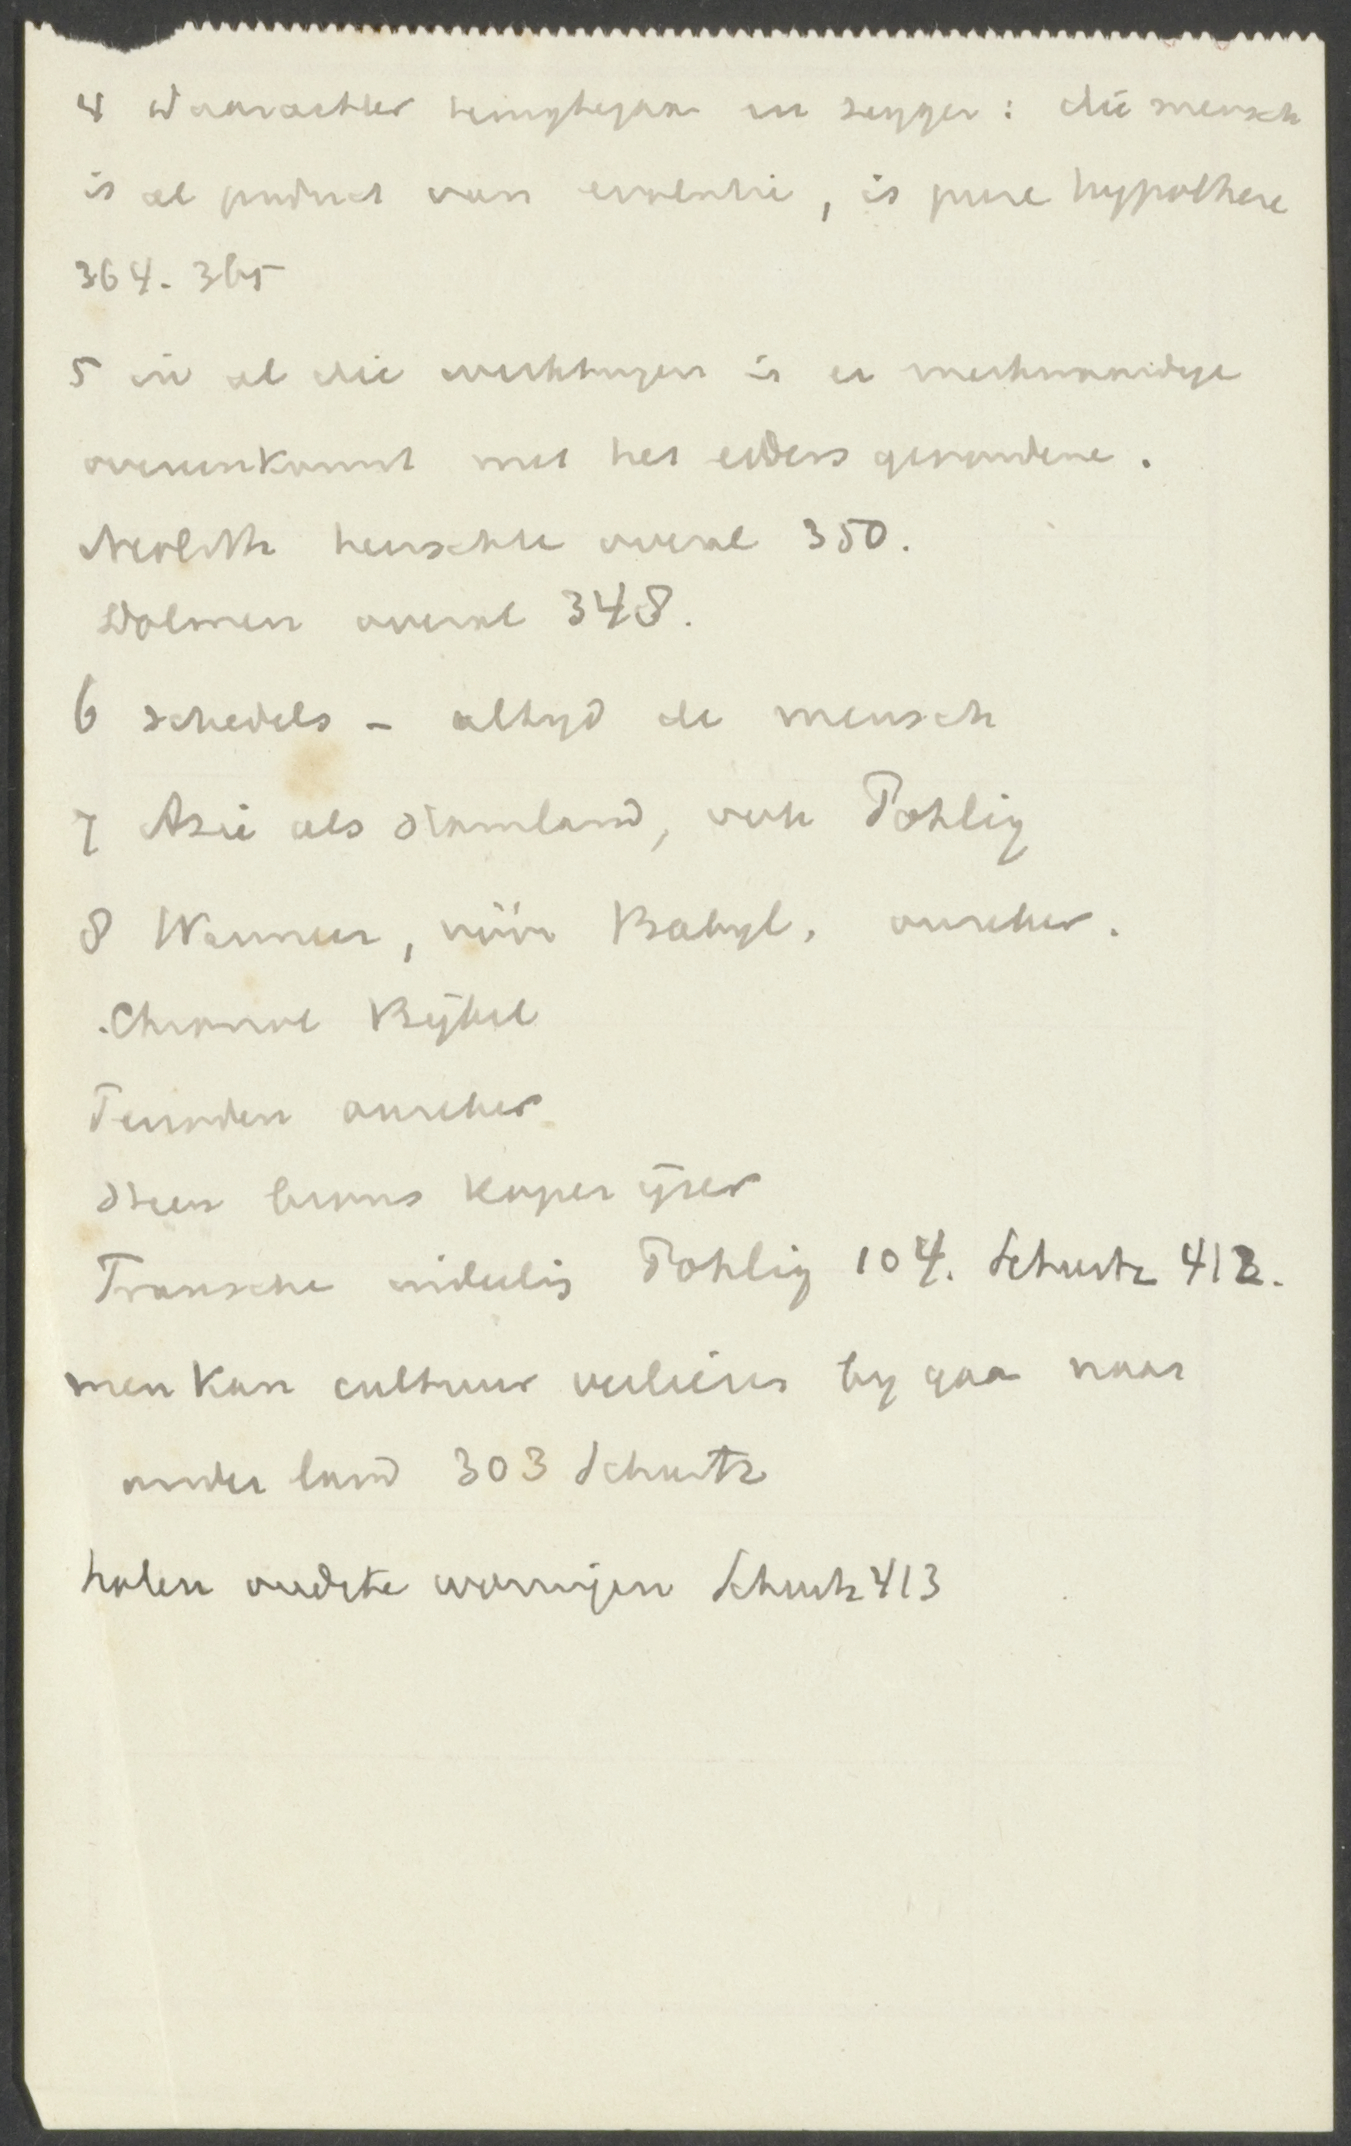 4 Waarachter teruggegaan en zeggen: die mensch
is al product van evolutie, is pure hypothese
364. 365
5 in al die werktuigen is er merkwaardige
overeenkomst met het elders gevondene.
Neolith heerschte overal 350.
Dolmen overal 348.
6 schedels - altyd de mensch
7 Azie als stamland, ook Pohlig
8 Wanneer, vóór Babyl. onzeker.
Chronol Bybel
Perioden onzeker
steen brons koper ijzer
Fransche indeelig Pohlig 104. Schurtz 412.
men kan cultuur verliezen by gaa naar
ander land 303 Schurtz
holen oudste woningen Schurtz 413